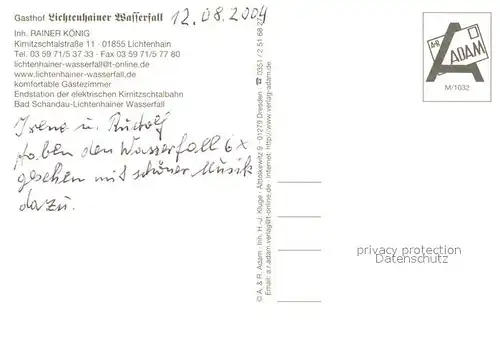 Gasthof Lichtenhainer Wasserfall 12.08.2004
Inh. RAINER KÖNIG
Kirnitzschtalstraße 11 · 01855 Lichtenhain
Tel. 03 59 71/5 37 33 · Fax 03 59 71/5 77 80
lichtenhainer-wasserfall@t-online.de
www.lichtenhainer-wasserfall.de
komfortable Gästezimmer
Endstation der elektrischen Kirnitzschtalbahn
Bad Schandau-Lichtenhainer Wasserfall
Irene u. Rudolf
haben den Wasserfall 6x
gesehen mit schöner Musik
dazu.
© A. & R. Adam · Inh. H.-J. Kluge · Altloskewitz 9 · 01279 Dresden · ☎ 0351 / 2 51 68 2
Email: a.r.adam.verlag@t-online.de · Internet: http://www.verlag-adam.de
A+R
ADAM
M/1032
privacy protection
Datenschutz